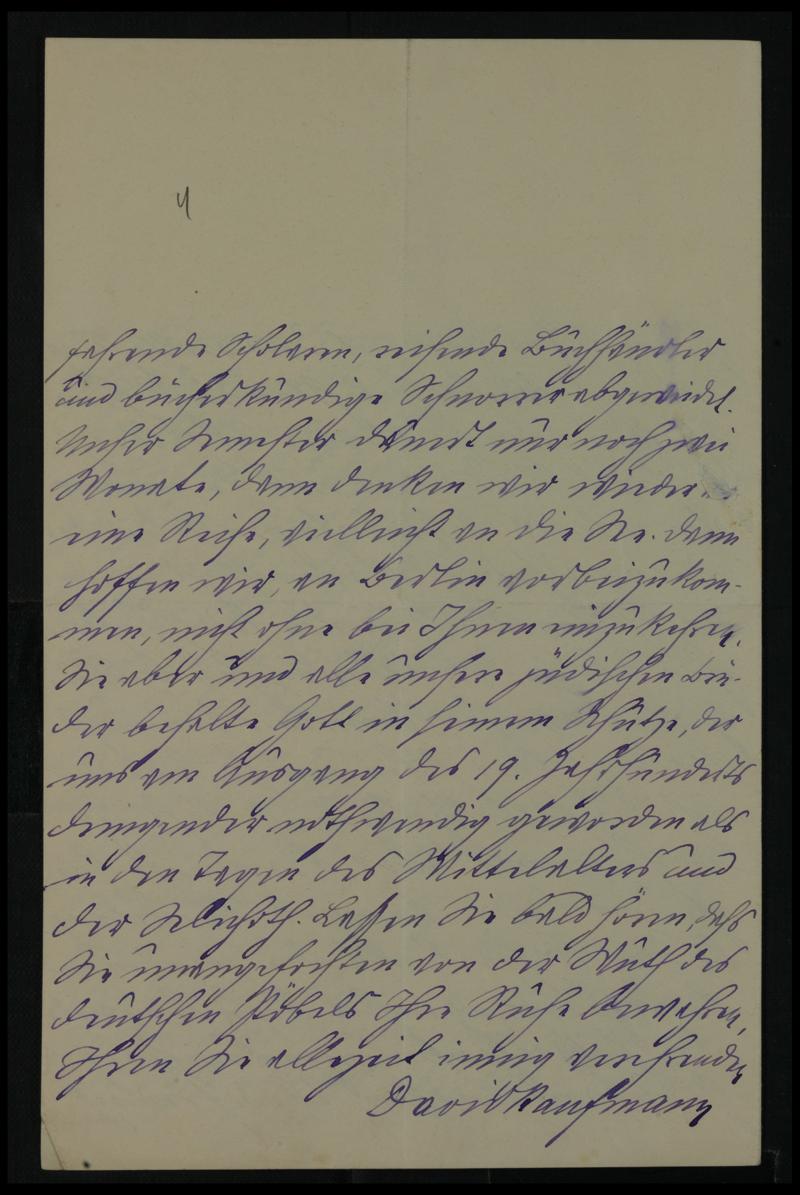 4
fahrende Scholaren, reisende Buchhändler
und bücherkundige Schnorrer abgeweidet.
Unser Semester dauert nur noch zwei
Monate, dann denken wir wieder
eine Reise, vielleicht an die See. Dann
hoffen wir, an Berlin vorbeizukom-
men, nicht ohne bei Ihnen einzukehren.
Sie aber und alle unsere jüdischen Brü-
der behalte Gott in seinem Schutze, der
uns am Ausgang des 19. Jahrhunderts
dringender nothwendig geworden als
in den Tagen des Mittelalters und
der Selichoth. Lassen Sie bald hören, daß
Sie unangefochten von der Wuth des
deutschen Pöbels Ihre Ruhe bewahren,
Ihren Sie allezeit innig verehrenden
David Kaufmann